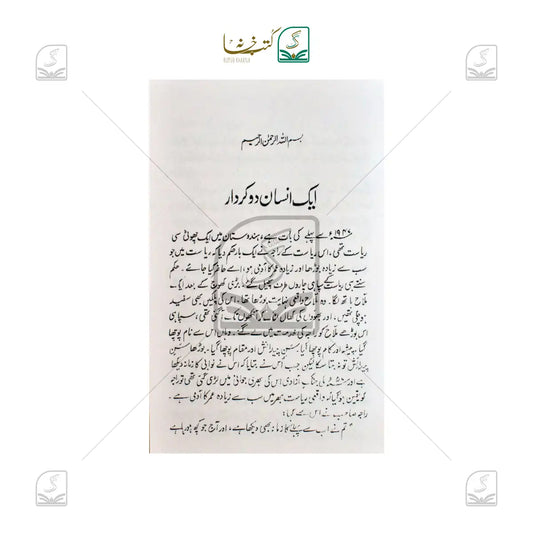 کتب خانہ
بسم اللہ الرحمٰن الرحیم
ایک انسان دو کردار
۱۹۴۷ء سے پہلے کی بات ہے، ہندوستان میں ایک چھوٹی سی
ریاست تھی، اس ریاست کے راجہ نے ایک بار حکم دیا کہ ریاست میں جو
سب سے زیادہ بوڑھا اور زیادہ عمر کا آدمی ہو، اسے حاضر کیا جائے۔ حکم
سنتے ہی سپاہی چاروں طرف پھیل گئے، بڑی کھوج کے بعد ایک
ملاح ہاتھ لگا۔ وہ ملاح واقعی نہایت بوڑھا تھا، اس کی پلکیں بھی سفید
ہو چکی تھیں، اور بھوؤں کی کھال آنکھوں تھی، سپاہی
اس بوڑھے ملاح کو راجہ کی خدمت میں لے گئے۔ وہاں اس سے نام پوچھا
گیا، پیشہ اور کام پوچھا گیا، سن پیدائش اور مقام پوچھا گیا۔ بوڑھا سن
پیدائش تو نہ بتا سکا لیکن جب اس نے بتایا کہ اس نے نوابی کا زمانہ دیکھا
ہے اور جنگ آزادی اس کی بھری جوانی میں لڑی گئی تھی تو راجہ
کو یقین ہو گیا کہ واقعی ریاست بھر میں سب سے زیادہ عمر کا آدمی ہے۔
راجہ صاحب نے اس سے کہا:
"تم نے اب سے پہلے کا زمانہ بھی دیکھا ہے، اور آج جو کچھ ہو رہا ہے